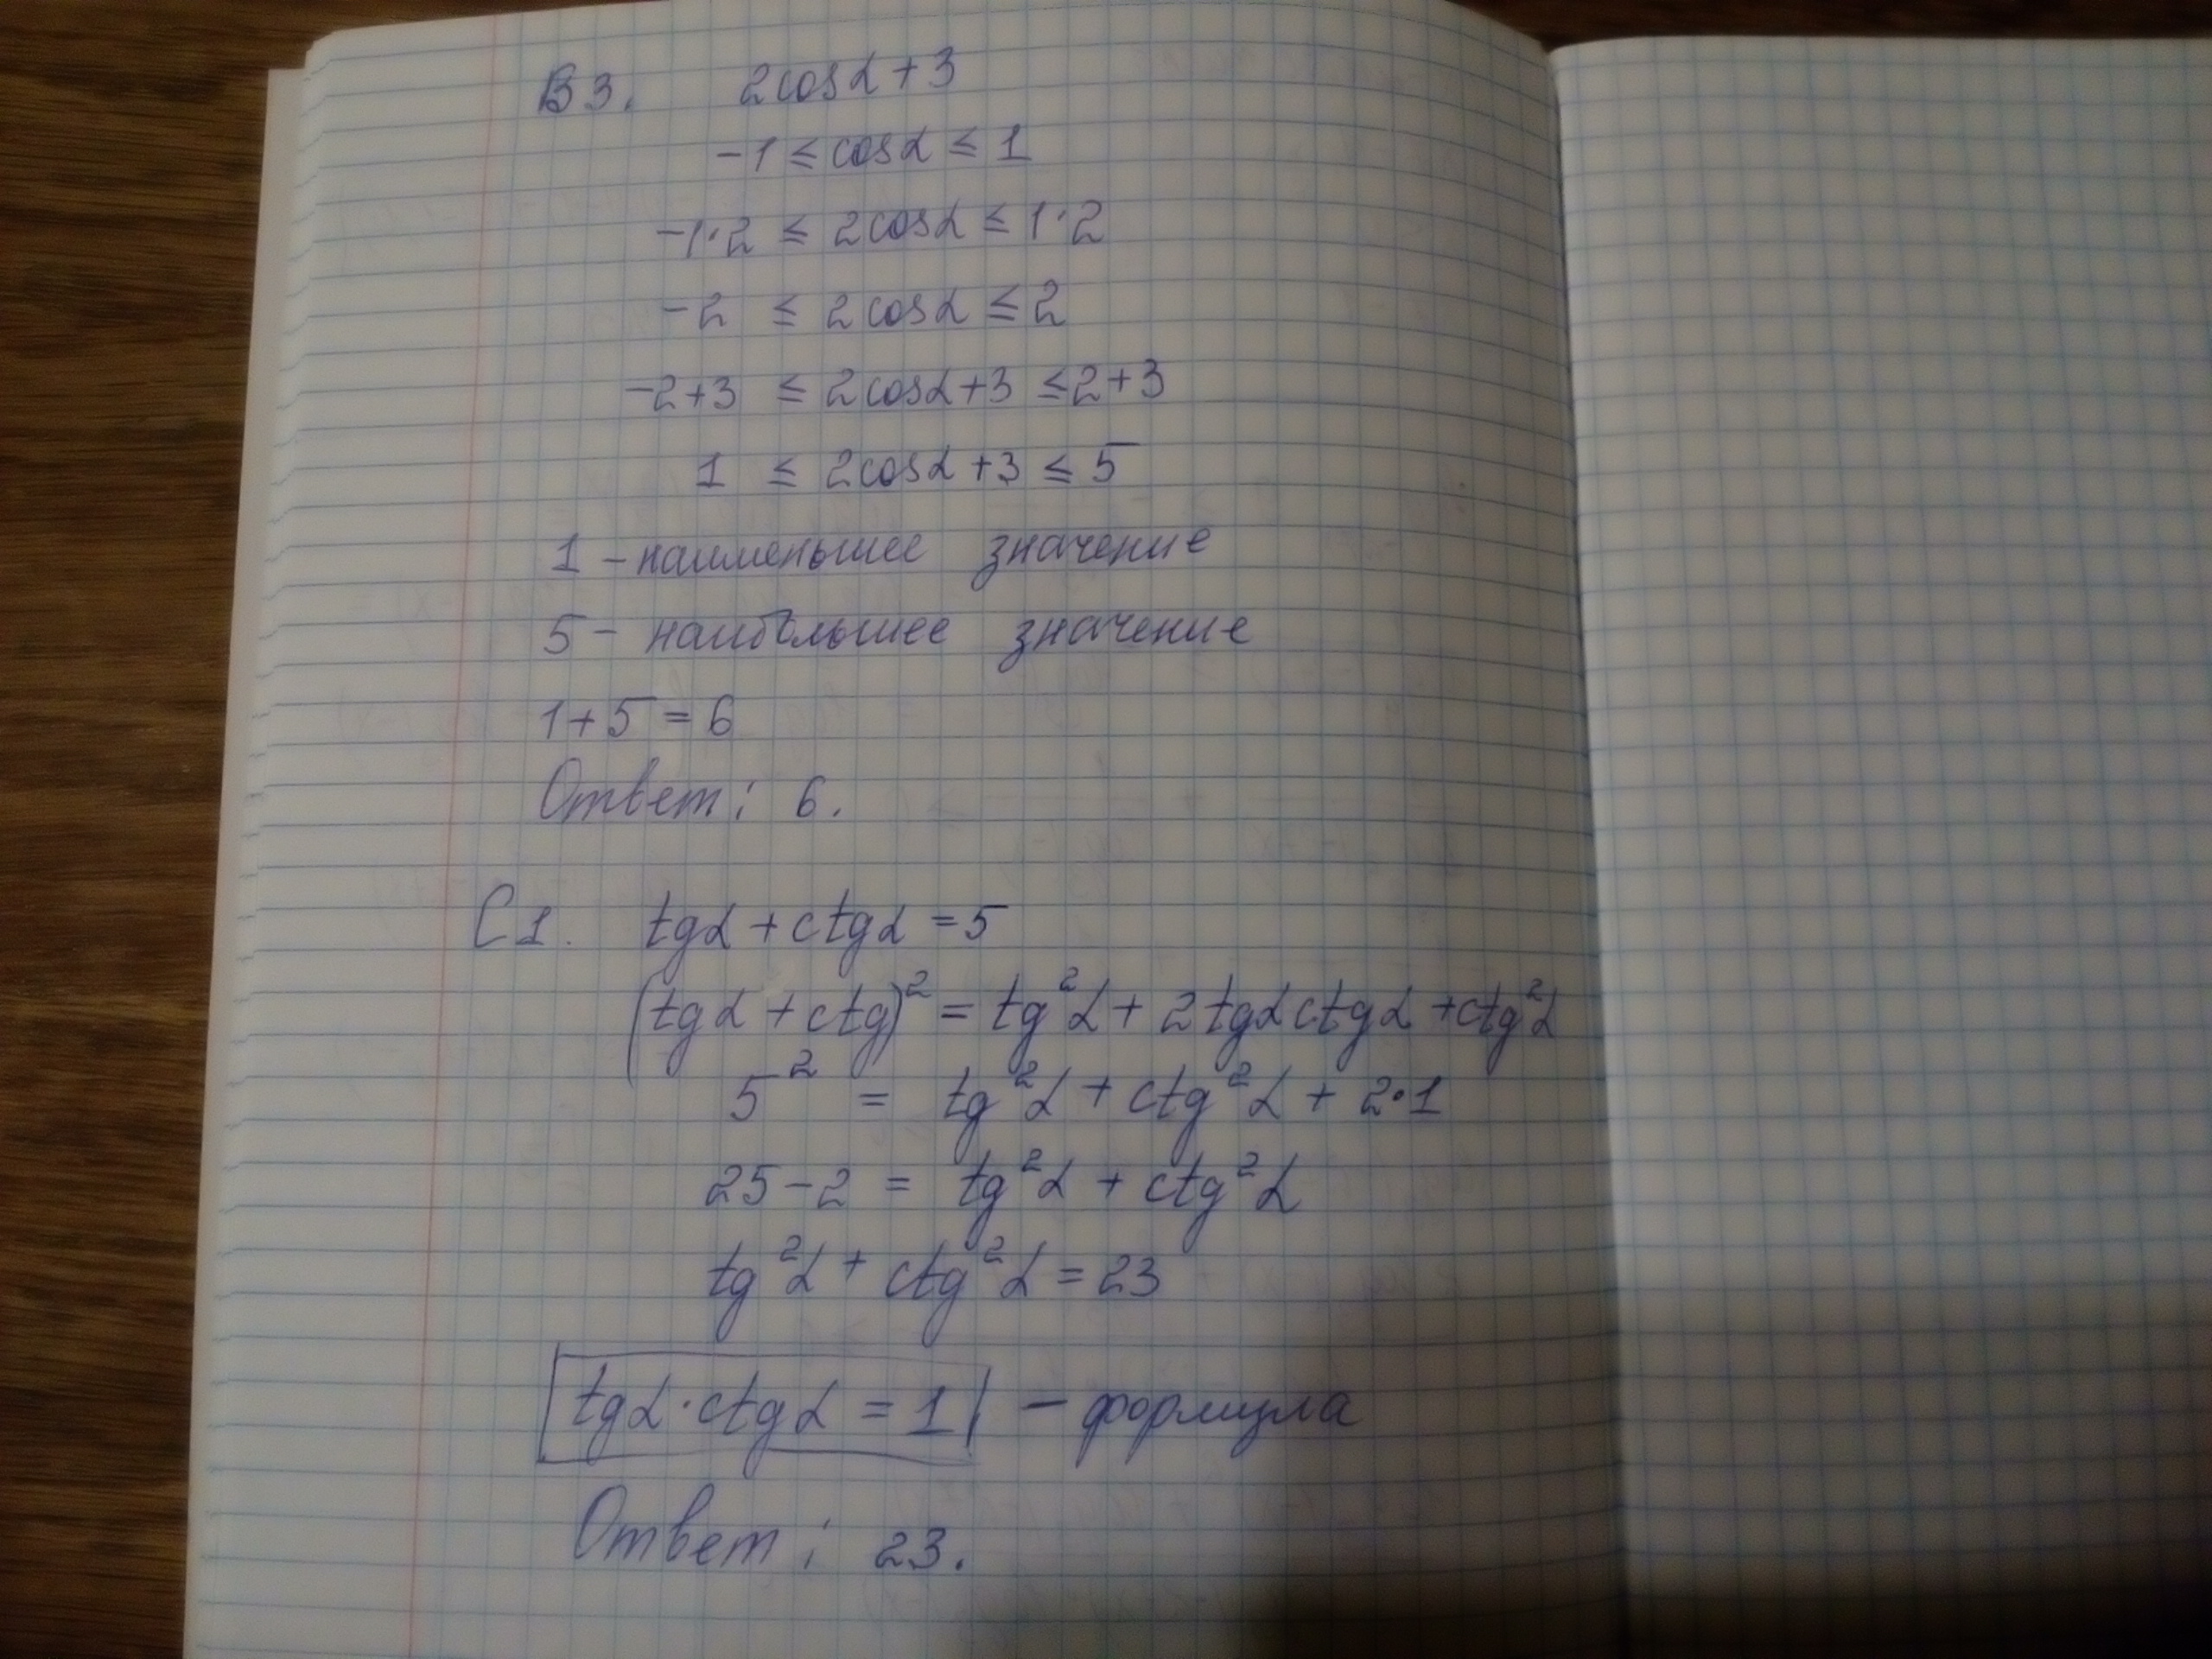 В3. 2cosα+3
-1 ≤ cosα ≤ 1
-1·2 ≤ 2cosα ≤ 1·2
-2 ≤ 2cosα ≤ 2
-2+3 ≤ 2cosα+3 ≤ 2+3
1 ≤ 2cosα+3 ≤ 5
1 - наименьшее значение
5 - наибольшее значение
1+5=6
Ответ: 6.
С1. tgα + ctgα = 5
(tgα + ctg)² = tg²α + 2tgα ctgα + ctg²α
5² = tg²α + ctg²α + 2·1
25-2 = tg²α + ctg²α
tg²α + ctg²α = 23
tgα·ctgα = 1 - формула
Ответ: 23.